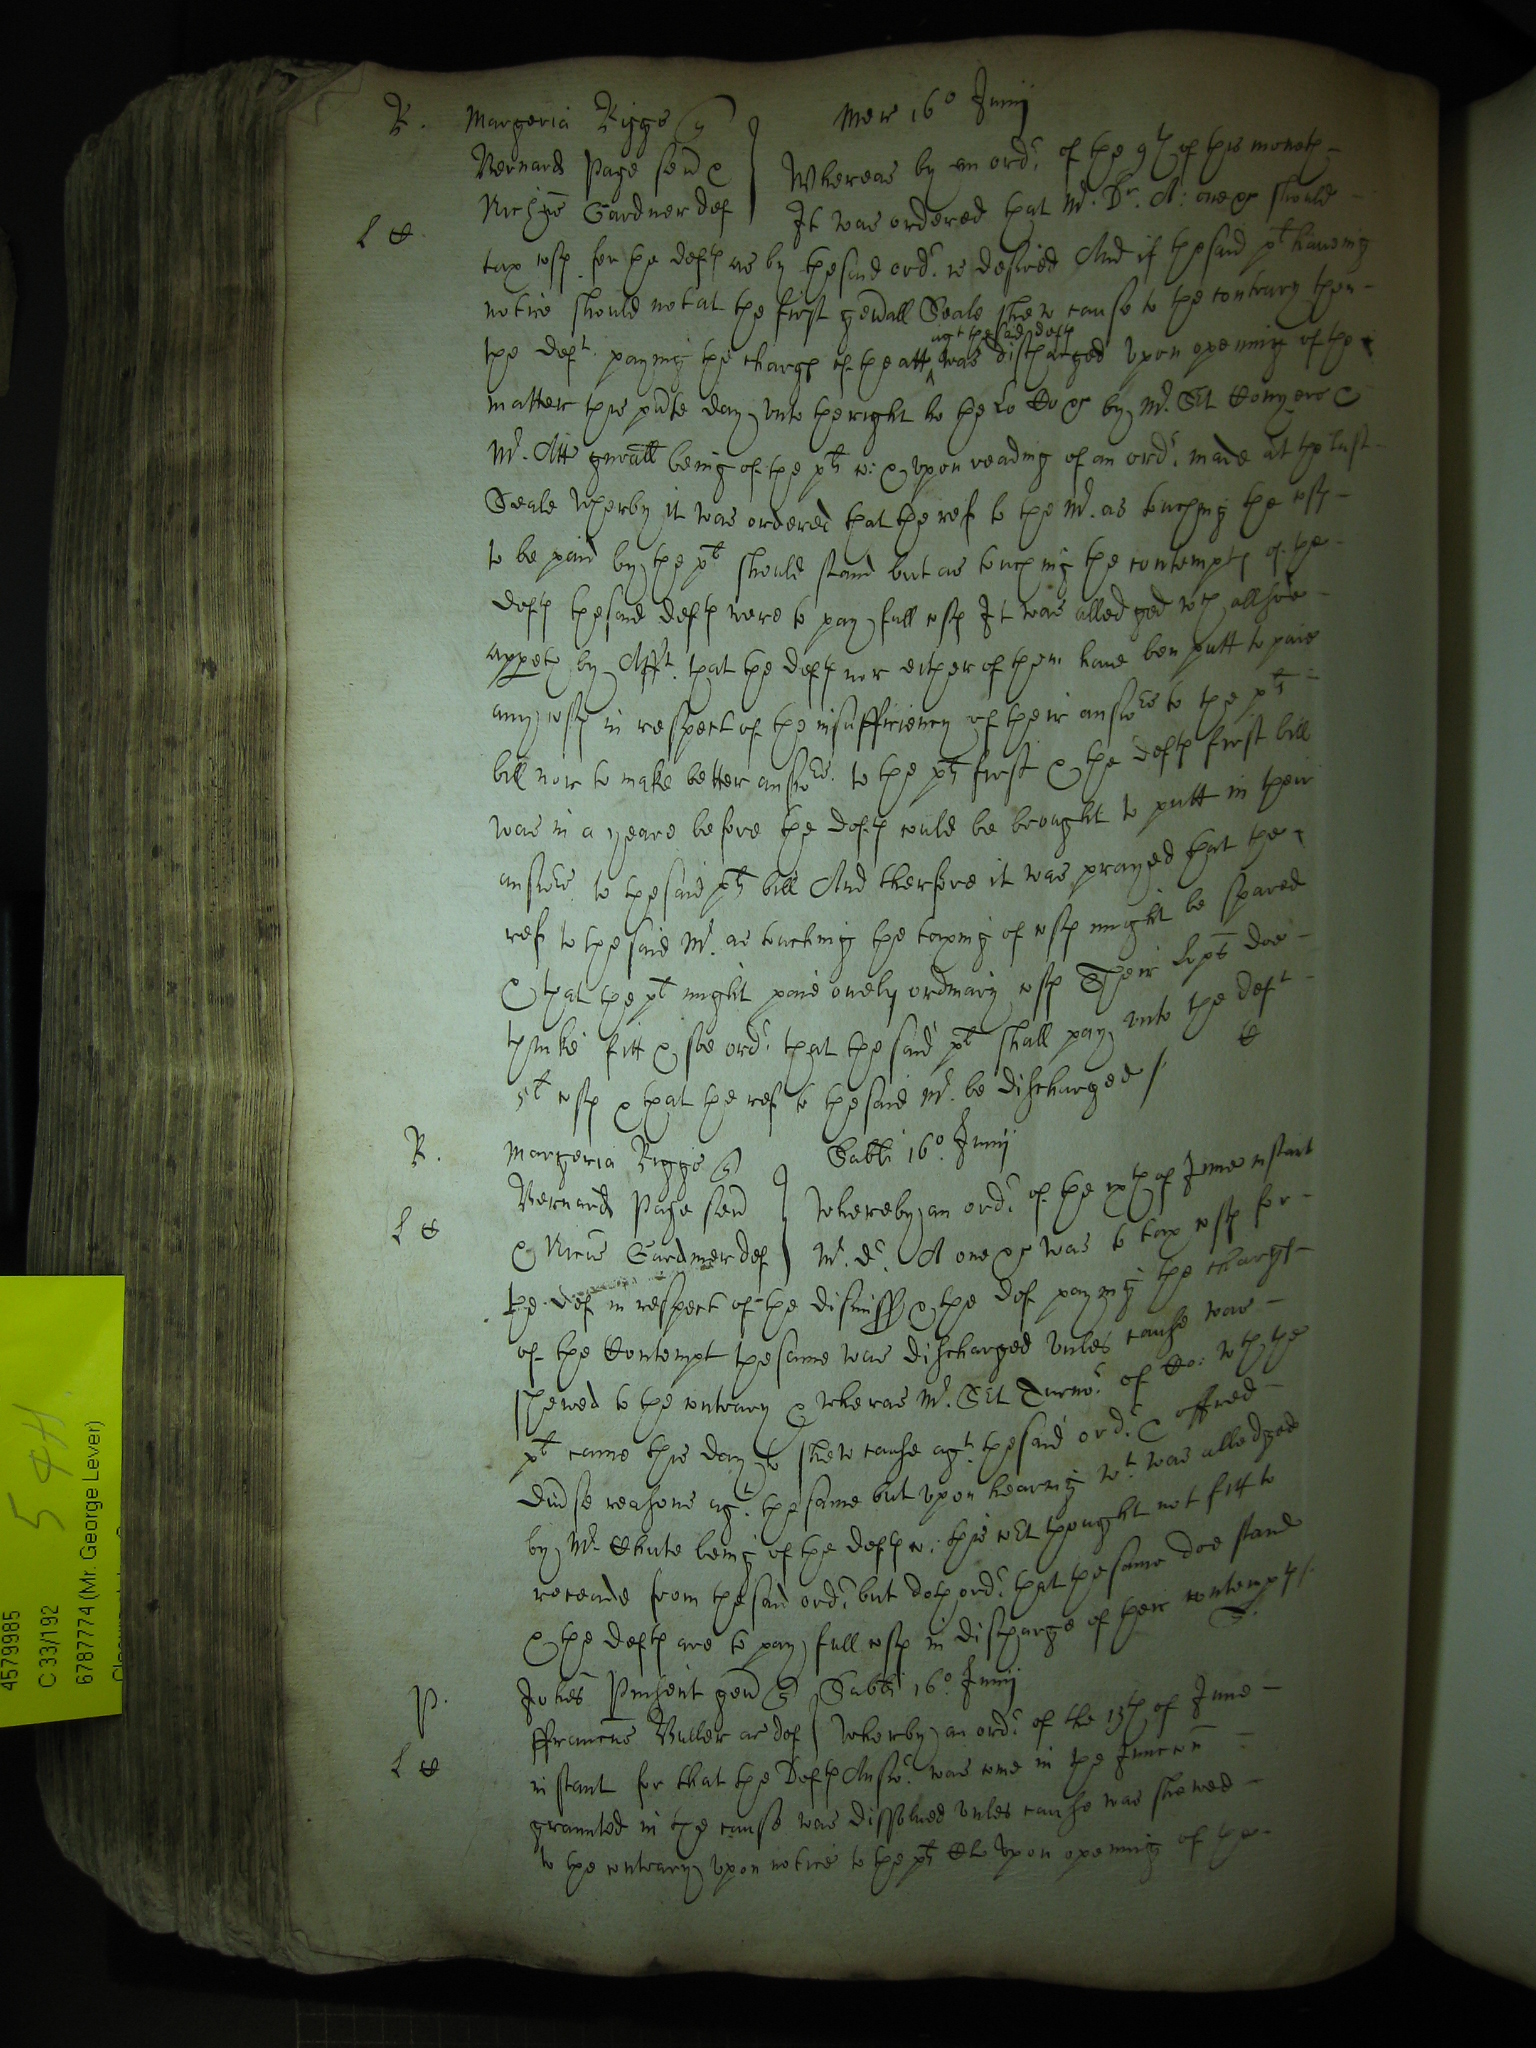 R. Margeria Riggs q Mer 16o Junij
Bernard Page sen &
Whereas by an ordr. of the 9th of this moneth
Richus Gardner def
It was ordered that Mr. Dr. A: one &c should
L C
tax costs for the defts as by the said ordr. is desired And if the said plt having
notice should not at the first gen'all Seale shew cause to the contrary then
agt the said defts
the deft. paying the chargs of the att was discharged Upon opening of the
matter this p'nte day unto the right ho the Lo by Mr. Sit &
Mr. Att gen'all being of the plts c: & upon reading of an ordr. made at the last
Seale wherby it was ordered that the ref to the Mr. as touching the costs
to be paid by the plt should stand but as touching the contempts of the
defts the said defts were to pay full costs It was alledged wch allsoe
appeth by Afft. that the defts nor either of them have ben putt to paie
any costs in respect of the insufficiency of their answers to the plts
bill nor to make better answers. to the plts first & the defts first bill
was in a yeare before the defts could be brought to putt in their
answers to the said plts bill And therfore it was prayed that the
ref to the said Mr. as touching the taxing of costs might be spared
& that the plt might paie onely ordinary costs Their Lops doe
thinke fitt & soe ordr. that the said plt shall pay unto the deft
5l costs & that the ref to the said Mr. be discharged /
C
R. Margeria Riggs q Sabbi 16o. Junij
Bernard Page sen
Whereby an ordr. of the ixth of June instant
L C
& Ricus Gardner def
Mr. Dr. A one &c was to tax costs for
the def in respect of the dismiss & the def paying the chargs
of the Contempt the same was discharged Unles cause was
shewed to the contrary & wheras Mr. Sit Turnor of Co: wth the
plt came this day to shew cause agt. the said ordr. & offred
div'se reasons agt. the same but upon hearing wt. was alledged
by Mr. Chute being of the defts c: this cot thought not fitt to
receade from the said ordr. but doth ordr. that the same doe stand
& the defts are to pay full costs in discharge of their contempts /.
P. Johes Pinsent gen q Sabbi 16o. Junij
ffrancus Buller ar def
Wherby an ordr. of the 13th of June
L C
instant for that the Defts Answr. was come in the Iniuncon
graunted in the cause was dissolved unles cause was shewed
to the contrary upon notice to the plts Clo Upon opening of the
54H
4579985
C 33/192
6787774 (Mr. George Lever)